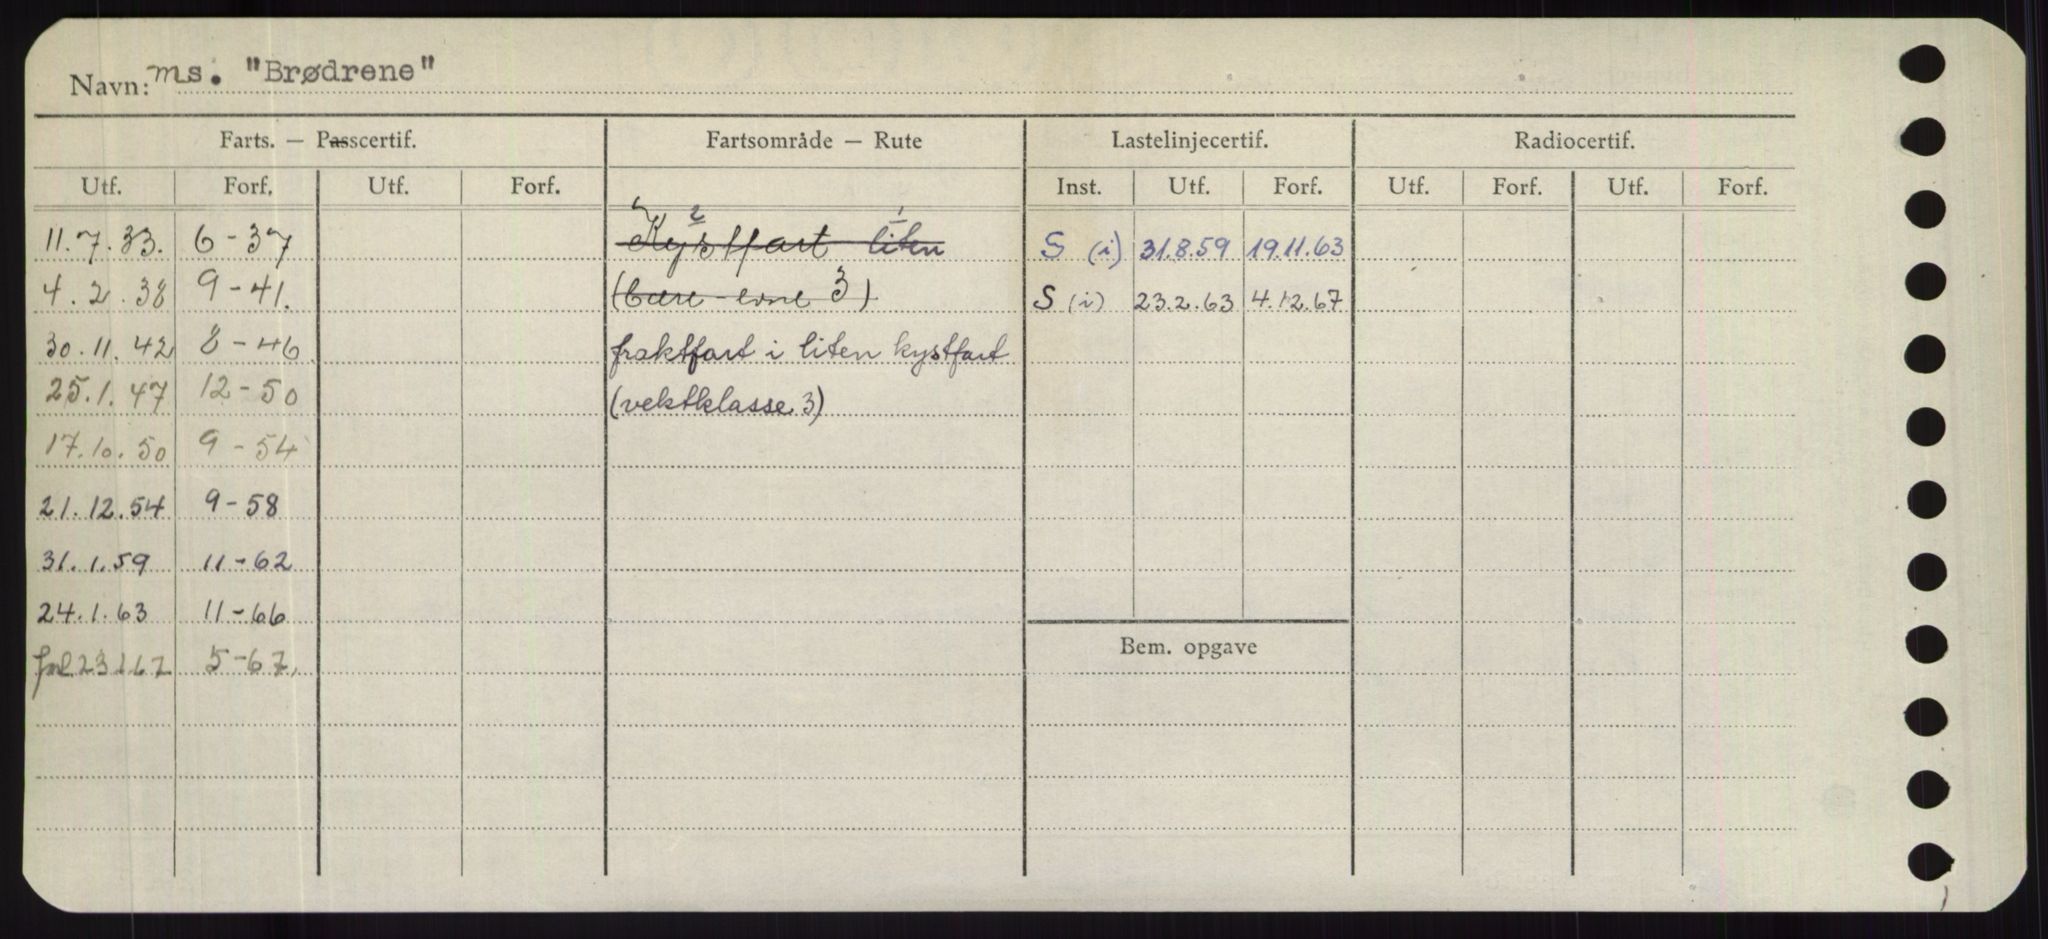 Navn: ms. "Brødrene"
Farts. — Passcertif. Fartsområde — Rute Lastelinjecertif. Radiocertif.
Utf. Forf. Utf. Forf. Inst. Utf. Forf. Utf. Forf. Utf. Forf.
2 1
11.7.33. 6-37 Kystfart liten S (i) 31.8.59 19.11.63
4.2.38 9-41. (bære-evne 3) S (i) 23.2.63 4.12.67
30.11.42 8-46 fraktfart i liten kystfart
25.1.47 12-50 (vektklasse 3)
17.10.50 9-54
21.12.54 9-58
31.1.59 11-62
24.1.63 11-66
Bem. opgave
23 1 67 5-67.